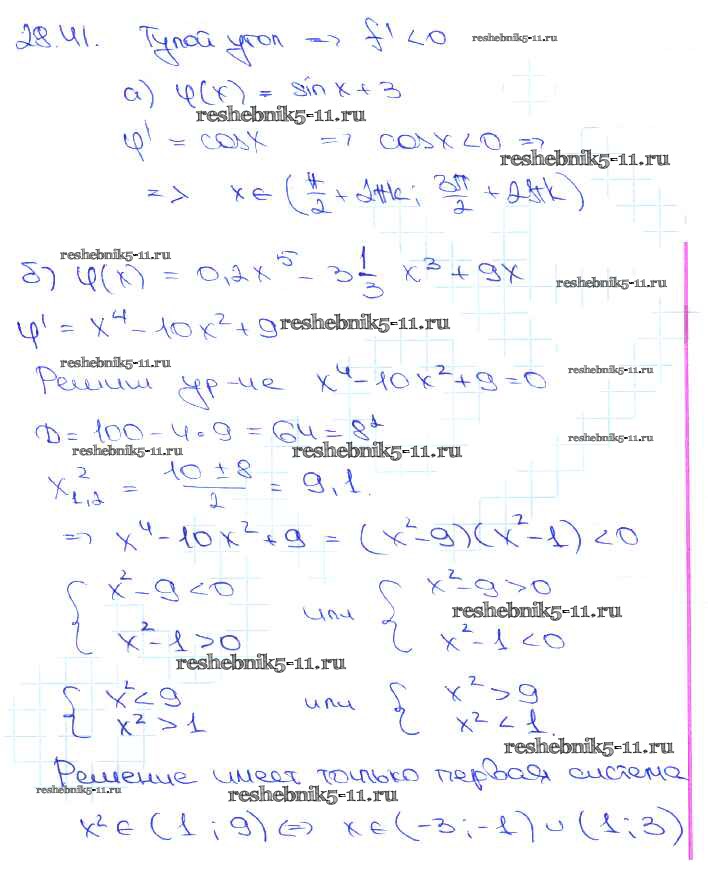 28.41. Тупой угол => f' < 0 reshebnik5-11.ru
а) φ(x) = sinx + 3
reshebnik5-11.ru
φ' = cosx => cosx < 0 =>
reshebnik5-11.ru
=> x ∈ (π/2 + 2πk; 3π/2 + 2πk)
reshebnik5-11.ru
б) φ(x) = 0,2x⁵ - 3 1/3 x³ + 9x reshebnik5-11.ru
φ' = x⁴ - 10x² + 9 reshebnik5-11.ru
reshebnik5-11.ru
Решим ур-ие x⁴ - 10x² + 9 = 0 reshebnik5-11.ru
D = 100 - 4·9 = 64 = 8² reshebnik5-11.ru
reshebnik5-11.ru reshebnik5-11.ru
x²₁,₂ = (10 ± 8)/2 = 9, 1.
=> x⁴ - 10x² + 9 = (x² - 9)(x² - 1) < 0
{ x² - 9 < 0 или { x² - 9 > 0
reshebnik5-11.ru
x² - 1 > 0 x² - 1 < 0
reshebnik5-11.ru
{ x² < 9 или { x² > 9
x² > 1 x² < 1.
reshebnik5-11.ru
Решение имеет только первая система
reshebnik5-11.ru reshebnik5-11.ru
x² ∈ (1; 9) <=> x ∈ (-3; -1) ∪ (1; 3)